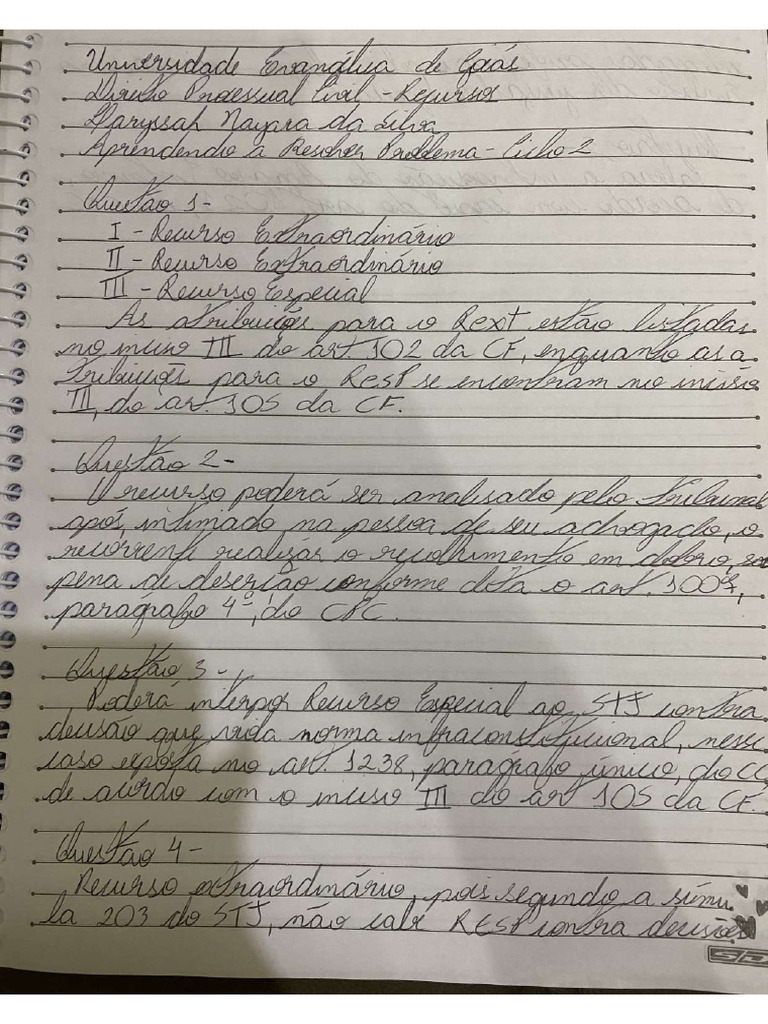 Universidade Evangélica de Goiás
Direito Processual Civil - Recursos
Haryssah Nayara da Silva
Aprendendo a Resolver Problema - Ciclo 2
Questão 1 -
I - Recurso Extraordinário
II - Recurso Extraordinário
III - Recurso Especial
As atribuições para o Rext estão listadas
no inciso III do art. 102 da CF, enquanto as a
tribuições para o ResP se encontram no inciso
III, do art. 105 da CF.
Questão 2 -
O recurso poderá ser analisado pelo Tribunal
após, intimado, na pessoa de seu advogado, o
recorrente realizar o recolhimento em dobro, sob
pena de deserção conforme dita o art. 1007,
parágrafo 4º, do CPC.
Questão 3 -
Poderá interpor Recurso Especial ao STJ contra
decisão que viola norma infraconstitucional, nesse
caso exposta no art. 1238, paragrafo único, do CC
de acordo com o inciso III do art 105 da CF.
Questão 4 -
Recurso extraordinário, pois segundo a súmu
la 203 do STJ, não cabe RESP contra decisões